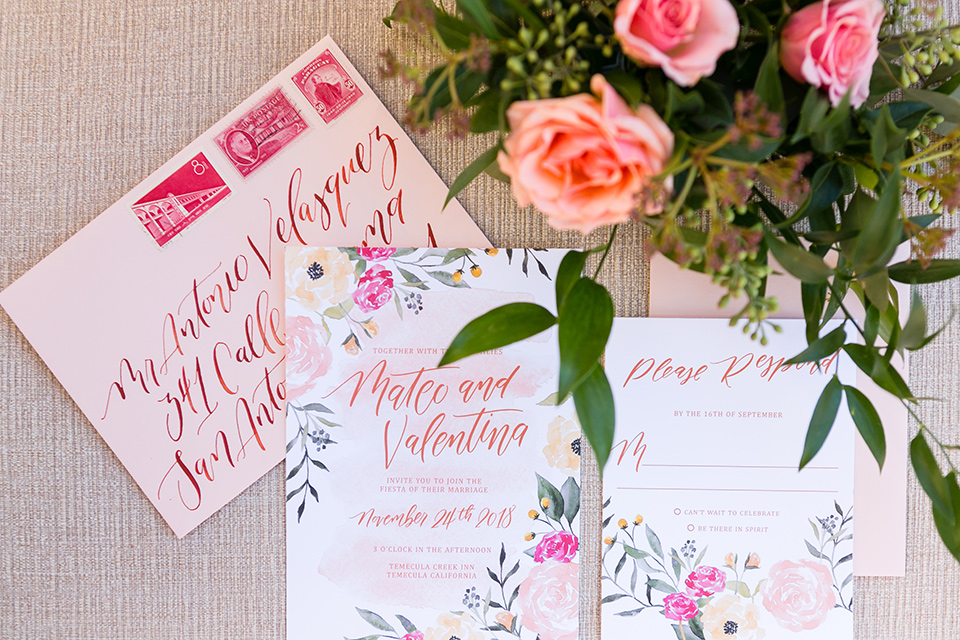 Mr Antonio Velasquez
341 Calle
San Anto
TOGETHER WITH
Mateo and
Valentina
INVITE YOU TO JOIN THE
FIESTA OF THEIR MARRIAGE
November 24th 2018
3 O'CLOCK IN THE AFTERNOON
TEMECULA CREEK INN
TEMECULA CALIFORNIA
Please Respond
BY THE 16TH OF SEPTEMBER
M
CAN'T WAIT TO CELEBRATE
BE THERE IN SPIRIT